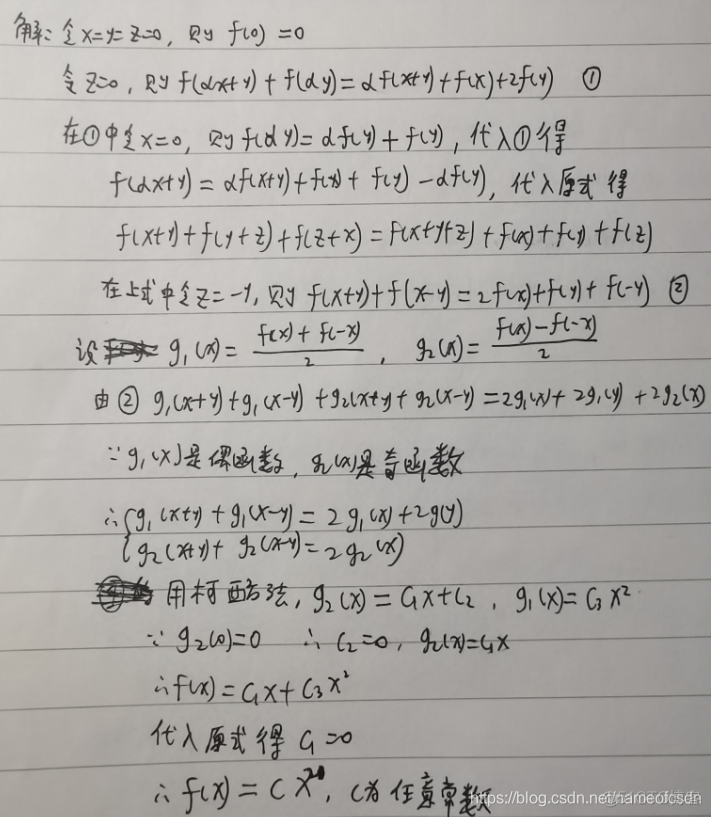 解: 令x=y=z=0, 则 f(0)=0
令z=0, 则 f(αx+y)+f(αy)=αf(x+y)+f(x)+2f(y) ①
在①中令x=0, 则f(αy)=αf(y)+f(y), 代入①得
f(αx+y)=αf(x+y)+f(x)+f(y)-αf(y), 代入原式得
f(x+y)+f(y+z)+f(z+x)=f(x+y+z)+f(x)+f(y)+f(z)
在上式中令z=-y, 则 f(x+y)+f(x-y)=2f(x)+f(y)+f(-y) ②
设 g₁(x)=(f(x)+f(-x))/2, g₂(x)=(f(x)-f(-x))/2
由② g₁(x+y)+g₁(x-y)+g₂(x+y)+g₂(x-y)=2g₁(x)+2g₁(y)+2g₂(x)
∵g₁(x)是偶函数, g₂(x)是奇函数
∴{g₁(x+y)+g₁(x-y)=2g₁(x)+2g(y)
{g₂(x+y)+g₂(x-y)=2g₂(x)
用柯西方法, g₂(x)=C₁x+C₂, g₁(x)=C₃x²
∵g₂(0)=0 ∴C₂=0, g₂(x)=C₁x
∴f(x)=C₁x+C₃x²
代入原式得 C₁=0
∴f(x)=Cx², C为任意常数
https://blog.csdn.net/nameofcsdn